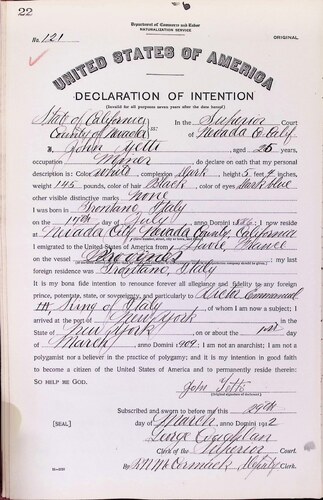 22
Department of Commerce and Labor
NATURALIZATION SERVICE
No. 121 ORIGINAL
UNITED STATES OF AMERICA
DECLARATION OF INTENTION
(Invalid for all purposes seven years after the date hereof)
State of California In the Superior Court
County of Nevada ss: of Nevada Co Calif.
I, John , aged 25 years,
occupation Miner, do declare on oath that my personal
description is: Color White, complexion Dark, height 5 feet 4 inches,
weight 145 pounds, color of hair Black, color of eyes Dark blue
other visible distinctive marks None
I was born in , Italy
on the day of July, anno Domini ; I now reside
at Nevada City Nevada County, California
I emigrated to the United States of America from Havre, France
on the vessel ; my last
foreign residence was , Italy
It is my bona fide intention to renounce forever all allegiance and fidelity to any foreign
prince, potentate, state, or sovereignty, and particularly to Victor Emmanuel
III, King of Italy, of whom I am now a subject; I
arrived at the port of New York, in the
State of New York, on or about the 1st day
of March, anno Domini 1909; I am not an anarchist; I am not a
polygamist nor a believer in the practice of polygamy; and it is my intention in good faith
to become a citizen of the United States of America and to permanently reside therein:
SO HELP ME GOD.
John
(Original signature of declarant)
Subscribed and sworn to before me this 29th
[SEAL] day of March, anno Domini 1912
Clerk of the Superior Court.
By McCormack Deputy Clerk.